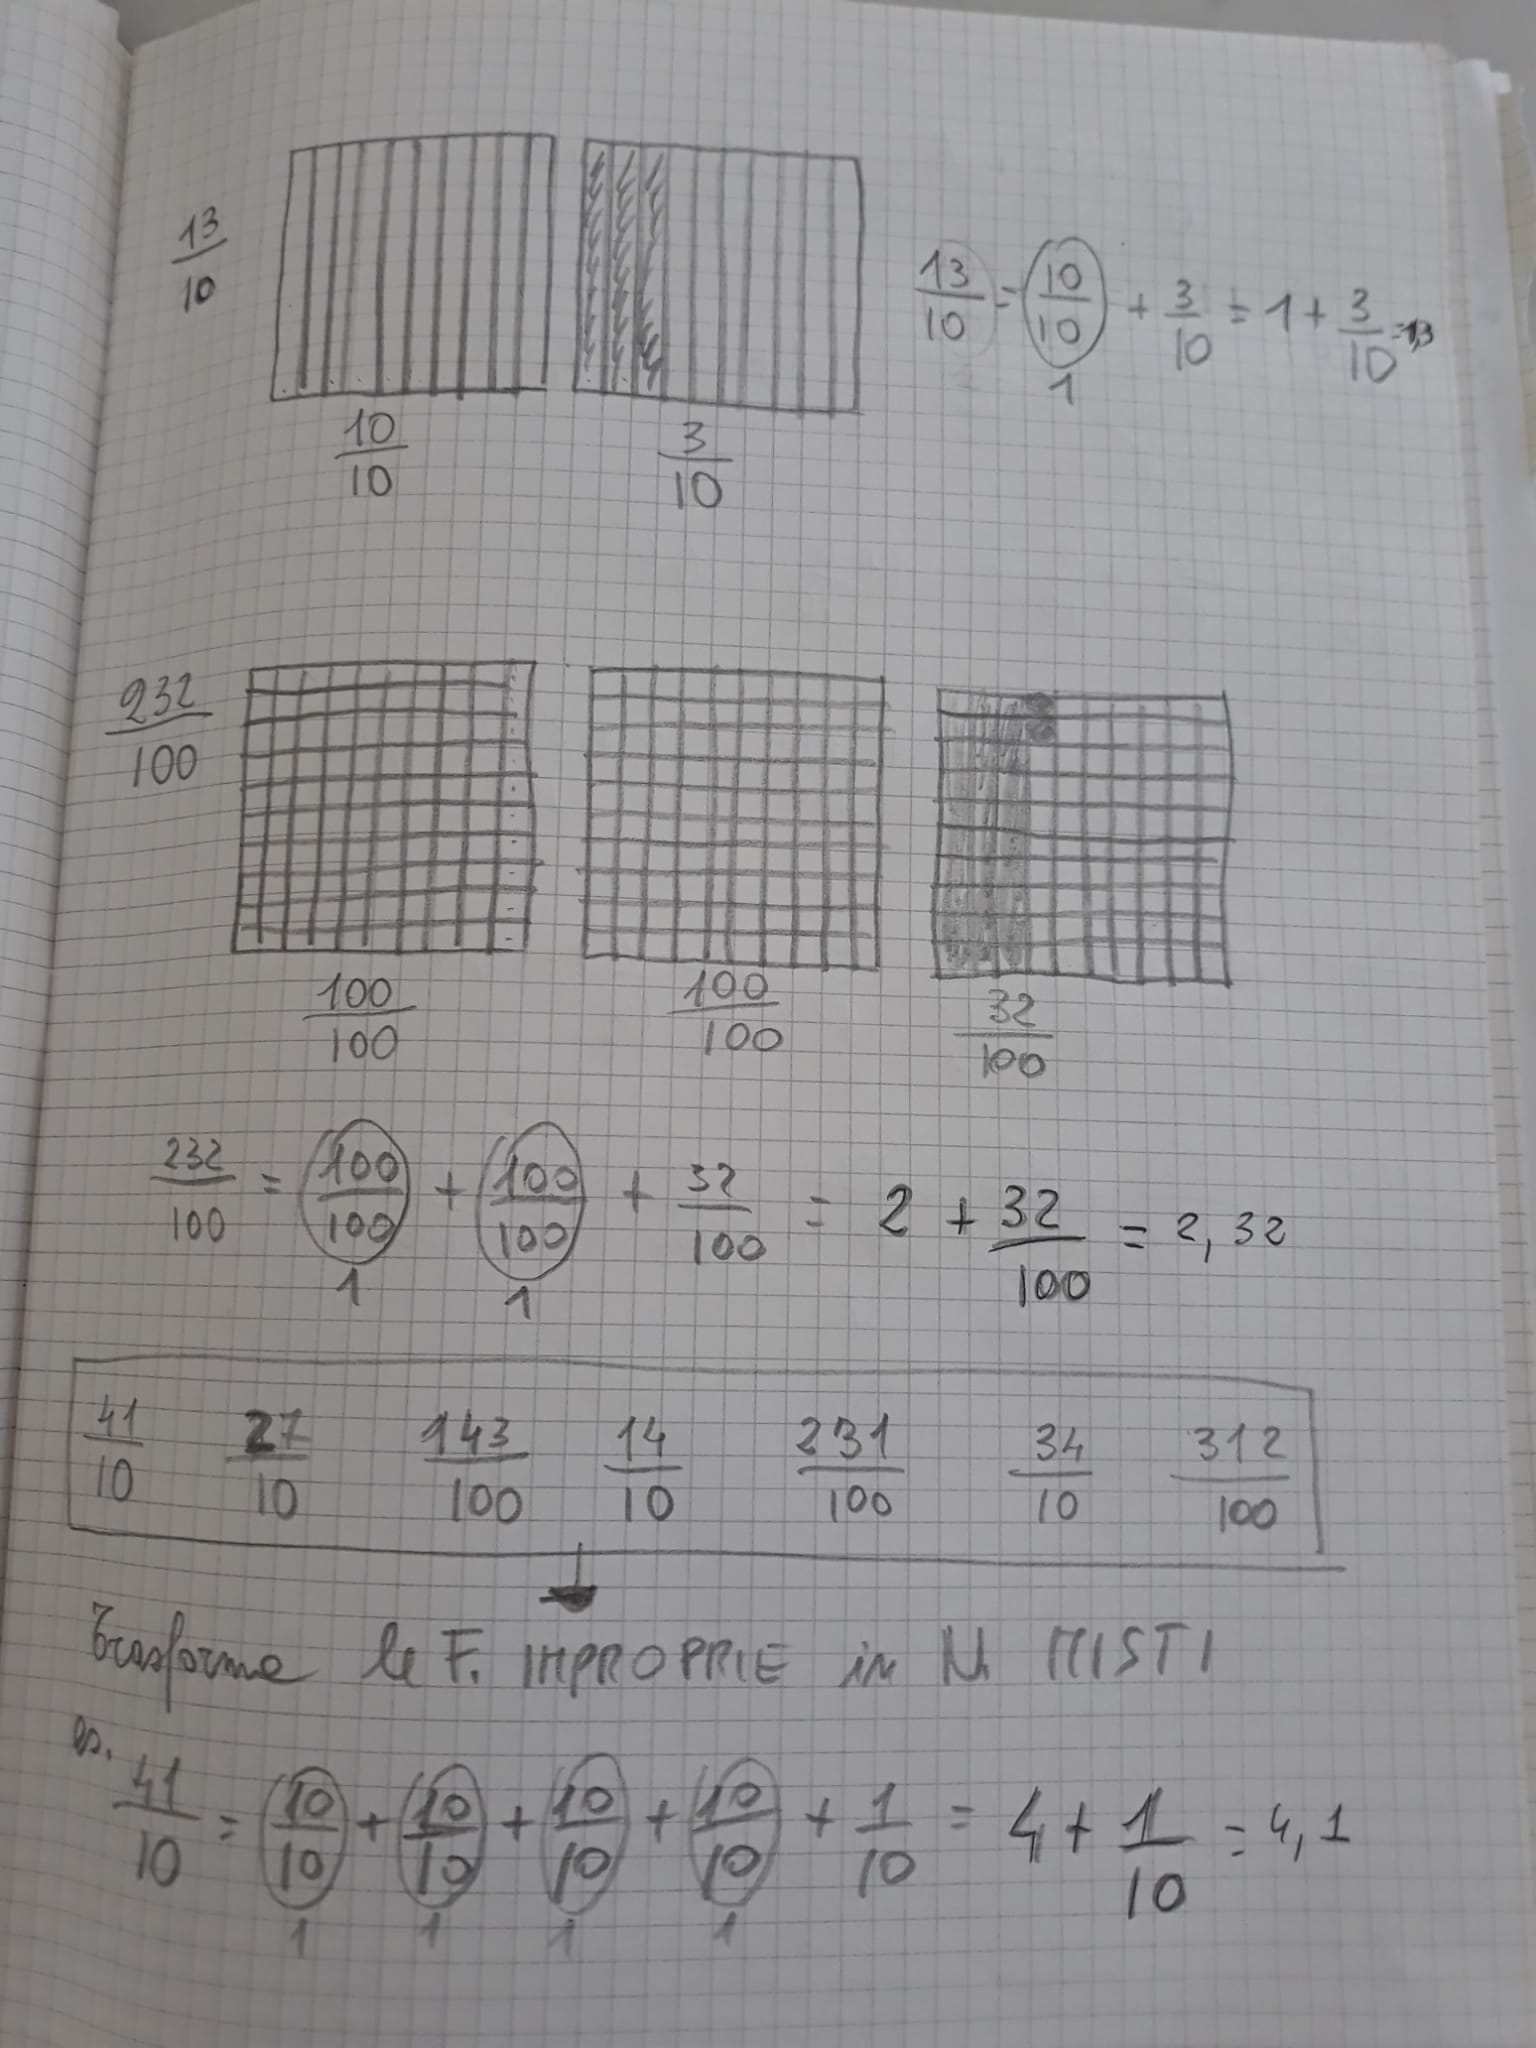 13/10
13/10 = 10/10 + 3/10 = 1 + 3/10 = 1,3
1
10/10 3/10
232/100
100/100 100/100 32/100
232/100 = 100/100 + 100/100 + 32/100 = 2 + 32/100 = 2,32
1 1
41/10 27/10 143/100 14/10 231/100 34/10 312/100
Trasforma le F. IMPROPRIE in N. MISTI
es.
41/10 = 10/10 + 10/10 + 10/10 + 10/10 + 1/10 = 4 + 1/10 = 4,1
1 1 1 1